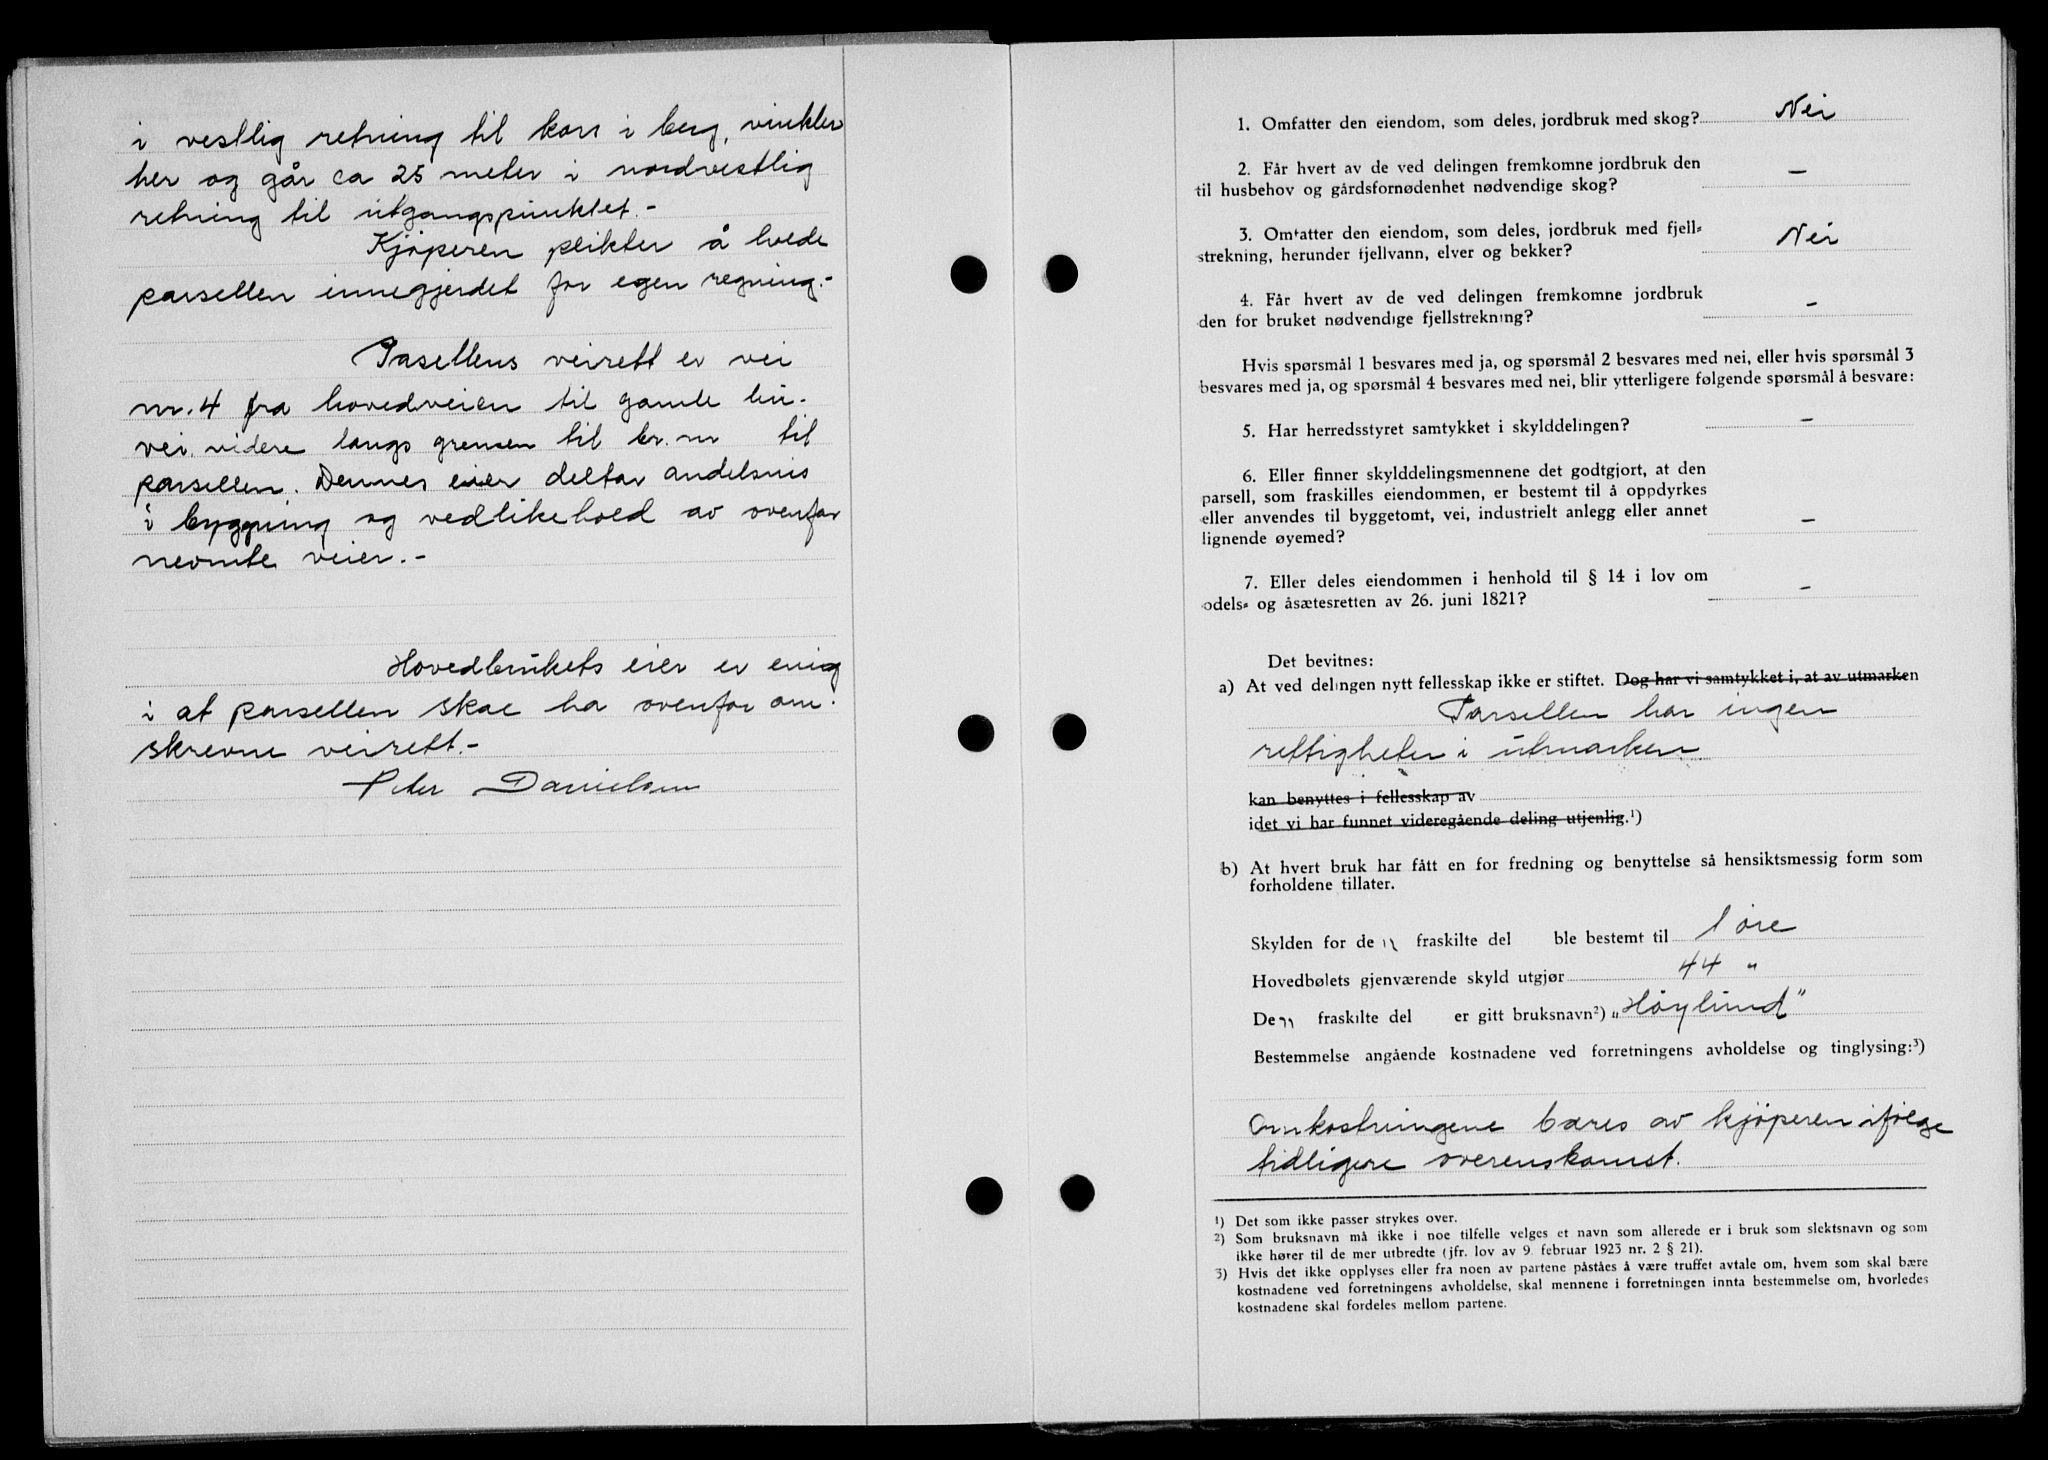 i vestlig retning til kors i berg, vinkler
her og går ca 25 meter i nordvestlig
retning til utgangspunktet.-
Kjøperen plikter å holde
parsellen innegjerdet for egen regning.-
Pasellens veirett er vei
nr. 4 fra hovedveien til gamle
vei videre langs grensen til br. nr til
parsellen. Dennes eier deltar andelsvis
i bygging og vedlikehold av ovenfor
nevnte veier.-
Hovedbrukets eier er enig
i at parsellen skal ha ovenfor om-
skrevne veirett.-
Peter Danielsen
1. Omfatter den eiendom, som deles, jordbruk med skog? Nei
2. Får hvert av de ved delingen fremkomne jordbruk den
til husbehov og gårdsfornødenhet nødvendige skog? –
3. Omfatter den eiendom, som deles, jordbruk med fjell-
strekning, herunder fjellvann, elver og bekker? Nei
4. Får hvert av de ved delingen fremkomne jordbruk
den for bruket nødvendige fjellstrekning? –
Hvis spørsmål 1 besvares med ja, og spørsmål 2 besvares med nei, eller hvis spørsmål 3
besvares med ja, og spørsmål 4 besvares med nei, blir ytterligere følgende spørsmål å besvare:
5. Har herredsstyret samtykket i skylddelingen? –
6. Eller finner skylddelingsmennene det godtgjort, at den
parsell, som fraskilles eiendommen, er bestemt til å oppdyrkes
eller anvendes til byggetomt, vei, industrielt anlegg eller annet
lignende øyemed? –
7. Eller deles eiendommen i henhold til § 14 i lov om
odels- og åsætesretten av 26. juni 1821? –
Det bevitnes:
a) At ved delingen nytt fellesskap ikke er stiftet. Dog har vi samtykket i, at av utmarken
Parsellen har ingen
rettigheter i utmarken
kan benyttes i fellesskap av
idet vi har funnet videregående deling utjenlig.¹)
b) At hvert bruk har fått en for fredning og benyttelse så hensiktsmessig form som
forholdene tillater.
Skylden for den fraskilte del ble bestemt til 1 øre
Hovedbølets gjenværende skyld utgjør 44 "
Den fraskilte del er gitt bruksnavn²) „Høylund"
Bestemmelse angående kostnadene ved forretningens avholdelse og tinglysing:³)
Omkostningene bæres av kjøperen ifølge
tidligere overenskomst.
¹) Det som ikke passer strykes over.
²) Som bruksnavn må ikke i noe tilfelle velges et navn som allerede er i bruk som slektsnavn og som
ikke hører til de mer utbredte (jfr. lov av 9. februar 1923 nr. 2 § 21).
³) Hvis det ikke opplyses eller fra noen av partene påståes å være truffet avtale om, hvem som skal bære
kostnadene ved forretningens avholdelse, skal mennene i forretningen innta bestemmelse om, hvorledes
kostnadene skal fordeles mellom partene.